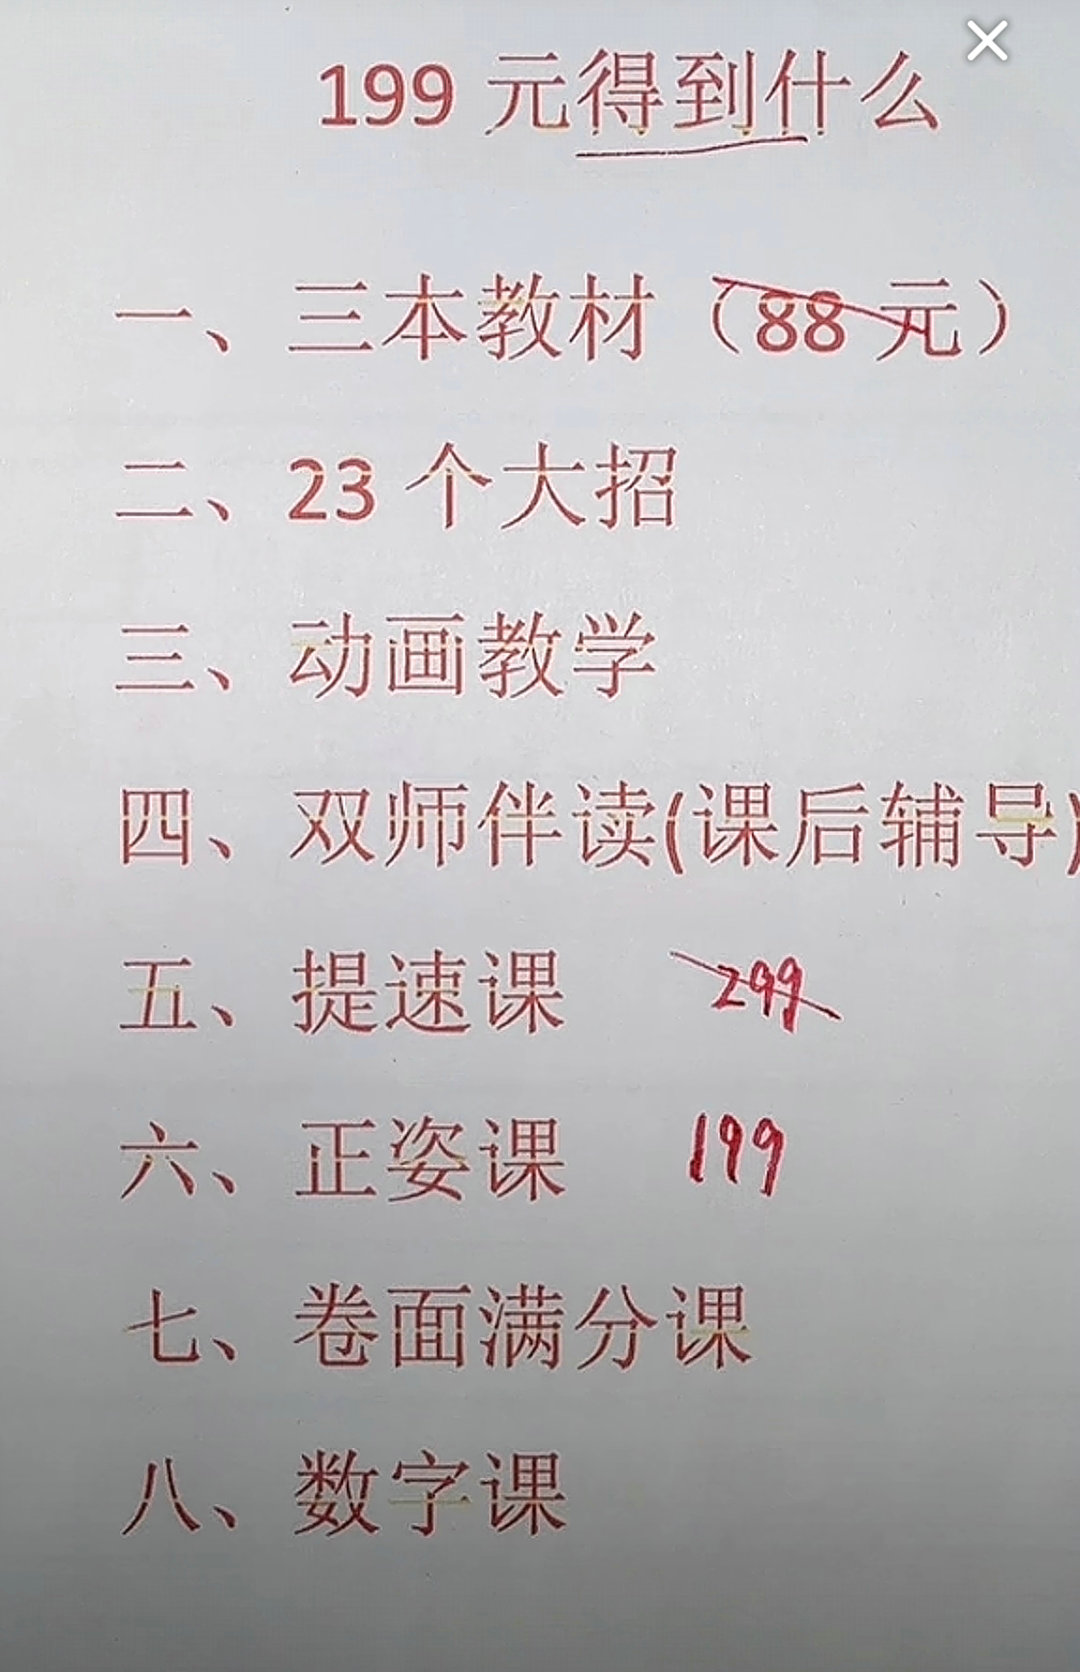 199 元得到什么
一、三本教材（88 元）
二、23 个大招
三、动画教学
四、双师伴读(课后辅导)
五、提速课 299
六、正姿课 199
七、卷面满分课
八、数字课